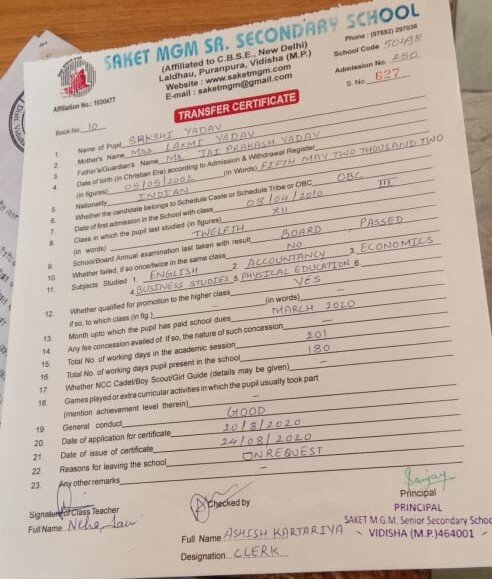 SAKET MGM SR. SECONDARY SCHOOL
(Affiliated to C.B.S.E., New Delhi)
Laldhau, Puranpura, Vidisha (M.P.)
Website : www.saketmgm.com
E-mail : saketmgm@gmail.com
Phone : (07592) 297036
School Code 50498
Admission No. 250
S. No. 627
Affiliation No.: 1030677
TRANSFER CERTIFICATE
Book No. 10
1. Name of Pupil SAKSHI YADAV
2. Mother's Name MRS LAXMI YADAV
3. Father's/Guardian's Name MR JAI PRAKASH YADAV
4. Date of birth (in Christian Era) according to Admission & Withdrawal Register
(in figures) 05/05/2002 (in Words) FIFTH MAY TWO THOUSAND TWO
5. Nationality INDIAN
6. Whether the candidate belongs to Schedule Caste or Schedule Tribe or OBC OBC
7. Date of first admission in the School with class 08/04/2010 III
8. Class in which the pupil last studied (in figures) XII
(in words) TWELFTH
9. School/Board Annual examination last taken with result BOARD, PASSED
10. Whether failed, if so once/twice in the same class NO
11. Subjects Studied 1. ENGLISH 2. ACCOUNTANCY 3. ECONOMICS
4. BUSINESS STUDIES 5. PHYSICAL EDUCATION 6. –
12. Whether qualified for promotion to the higher class YES
if so, to which class (in fig.) – (in words) –
13. Month upto which the pupil has paid school dues MARCH 2020
14. Any fee concession availed of. If so, the nature of such concession –
15. Total No. of working days in the academic session 201
16. Total No. of working days pupil present in the school 180
17. Whether NCC Cadet/Boy Scout/Girl Guide (details may be given) –
18. Games played or extra curricular activities in which the pupil usually took part
(mention achievement level therein) –
19. General conduct GOOD
20. Date of application for certificate 20/8/2020
21. Date of issue of certificate 24/08/2020
22. Reasons for leaving the school ON REQUEST
23. Any other remarks –
Signature of Class Teacher
Full Name Neha
Checked by
Full Name ASHISH KARTARIYA
Designation CLERK
Sanjay
Principal
PRINCIPAL
SAKET M.G.M. Senior Secondary School
VIDISHA (M.P.)464001